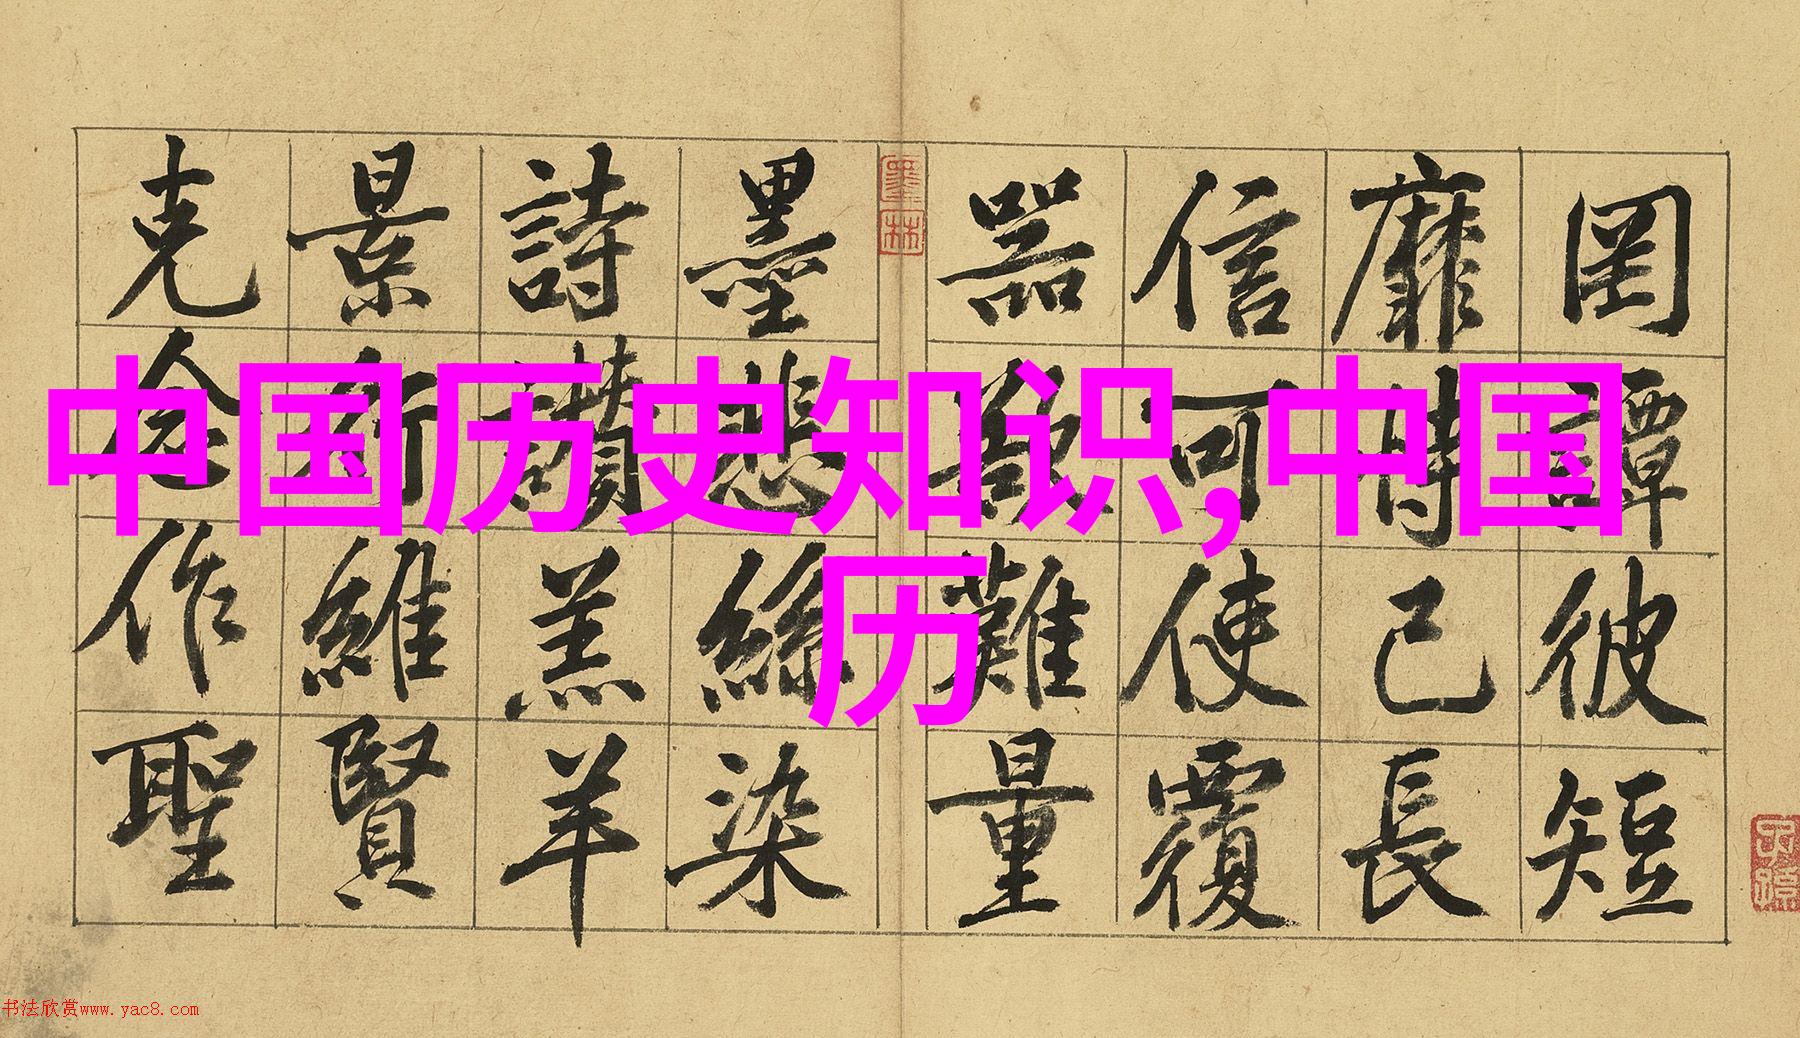 中国历史知识,中国
历
罔譚彼短
靡恃己長
信可使覆
器欲難量
墨悲絲染
詩讚羔羊
景行維賢
克念作聖
墨林
书法欣赏www.yac8.com